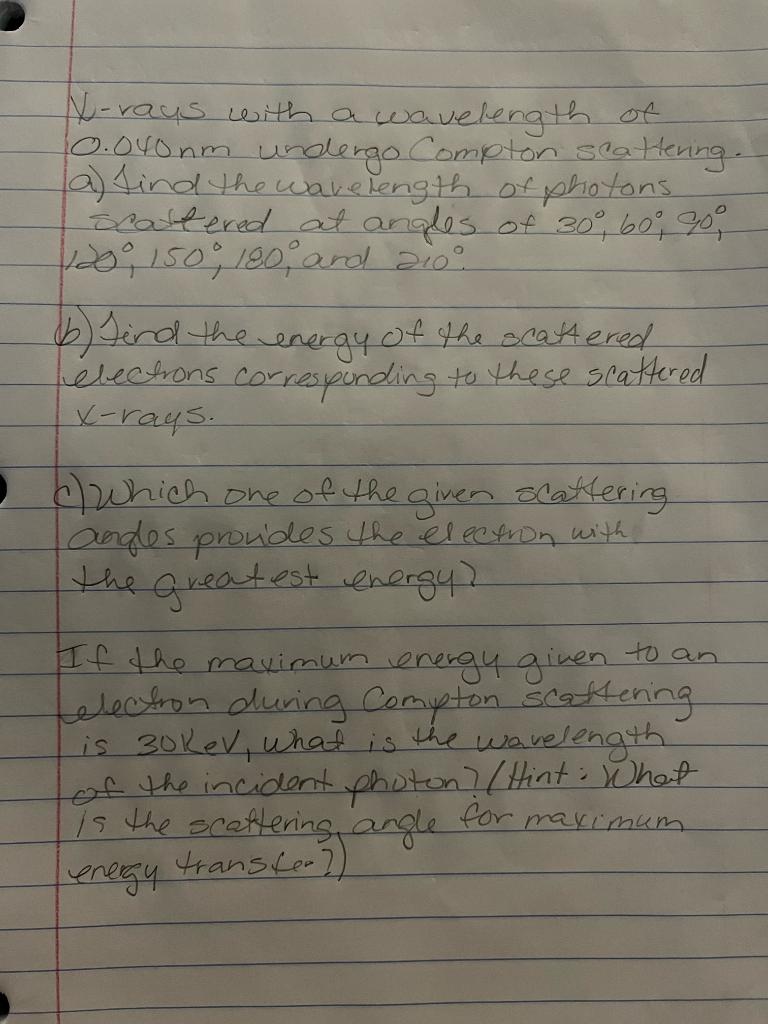 X-rays with a wavelength of
0.040nm undergo Compton scattering.
a) find the wavelength of photons
scattered at angles of 30°, 60°, 90°,
120°, 150°, 180°, and 210°.
b) find the energy of the scattered
electrons corresponding to these scattered
x-rays.
c) Which one of the given scattering
angles provides the electron with
the greatest energy?
If the maximum energy given to an
electron during Compton scattering
is 30KeV, what is the wavelength
of the incident photon? (Hint: What
is the scattering angle for maximum
energy transfer?)